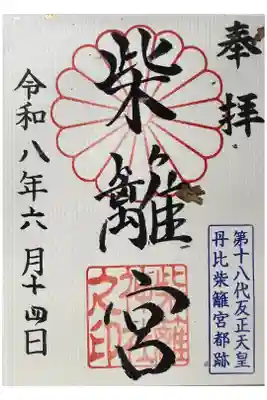 奉拝
柴籬宮
令和八年六月十四日
第十八代反正天皇
丹比柴籬宮都跡
柴籬
神社
之印